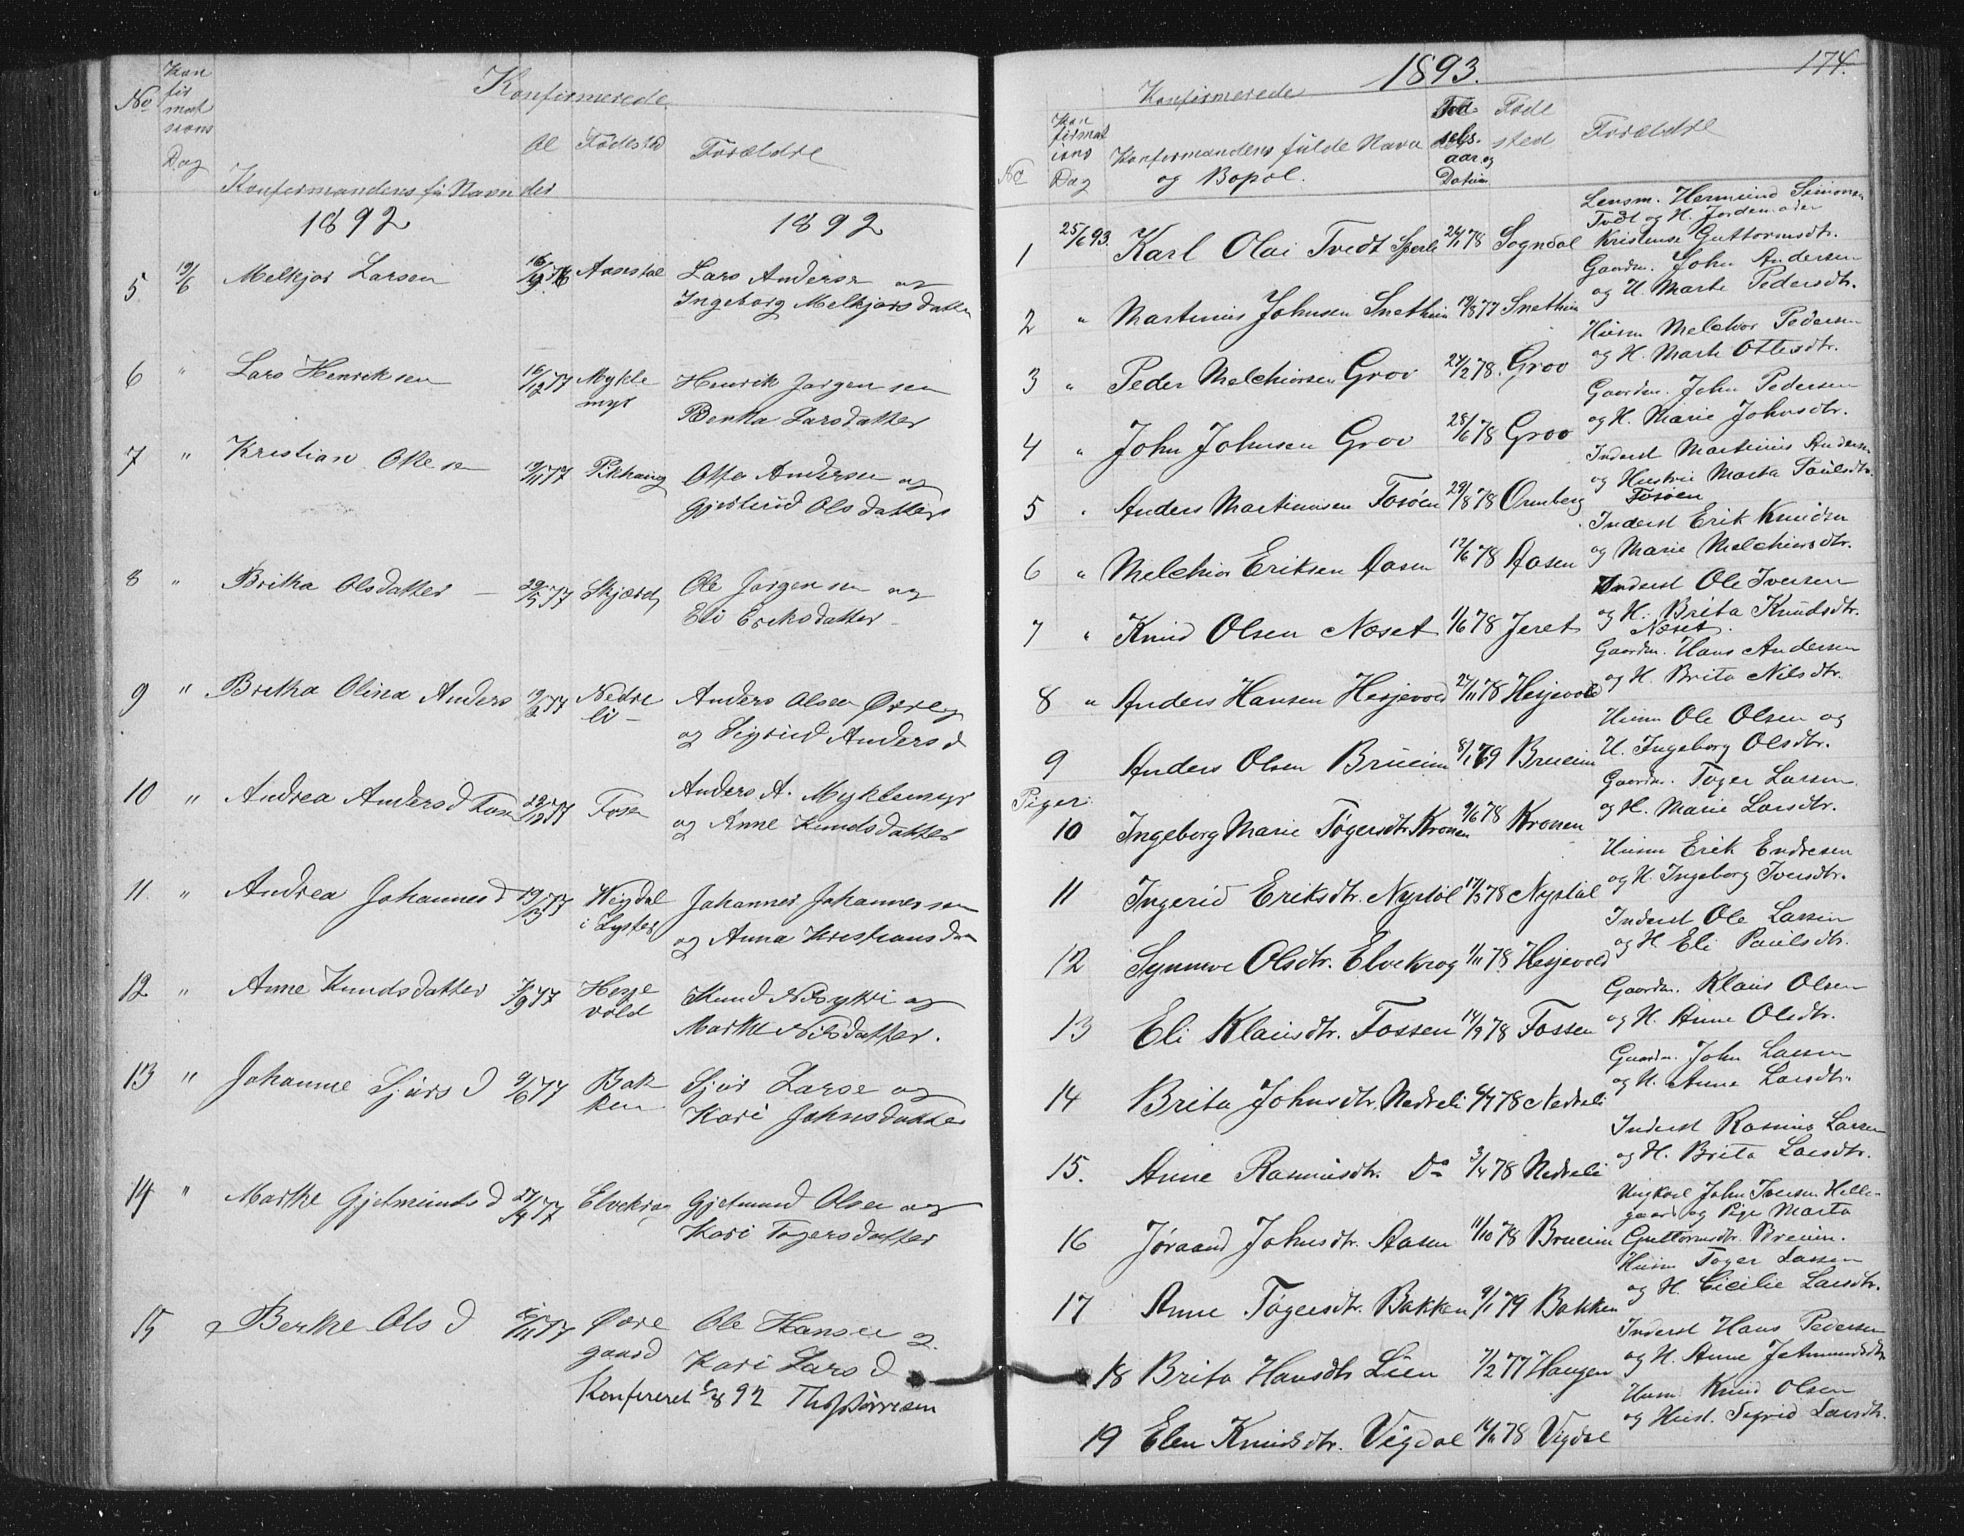 Konfirmerede
No
Kon
fir
mat
sions
Dag
Konfirmandens fu Navn
Al
der
Fødested
Forældre
1892 1892
5 19/6 Melkjor Larsen Lars Andersen og
Ingeborg Melkjorsdatter
6 " Lars Henriksen 16/12 77 Mykle Henrik Jørgensen
myr Bertha Larsdatter
7 " Kristian Ottesen 77 Otto Andersen og
Gjertrud Olsdatter
8 " Britha Olsdatter 29/5 77 Skjærd Ole Jørgensen og
Eli Eriksdatter
9 " Britha Olina Anders 77 Nedre Anders Olsen
li og Sigrid Andersd
10 " Andrea Andersd Foss 77 Foss Anders A. Myklemyr
og Anne Knudsdatter
11. " Andrea Johannesd 77 Vigdal Johannes Johannessen
i Lyster og Anna Kristiansd
12 " Anne Knudsdatter 77 Hesje Knud
vold Marthe Nilsdatter.
13 " Johanne Sjurs d 9/6 77 Bak Sjur Larse og
ken Kari Johnsdatter
14 " Marthe Gjetmundsd 27/4 77 Elvekrog Gjetmund Olsen og
Kari Togersdatter
15 Berthe Ols d 77 Øvre Ole Hansen og
gaard Kari Lars d
Konfereret 92
1893. 174.
Konfirmerede
No
Kon
firmat
ions
Dag
Konfirmandens fulde Navn
og Bopæl.
Fød-
sels-
aar og
Datum
Føde
sted
Forældre
Lensm. Hermund Simonsen
Tvedt og H. Jordemoder
1 25/6 93. Karl Olai Tvedt 24/1 78 Sogndal Kristense Guttormsdtr.
Gaardm. John Andersen
og H. Marte Pedersdtr.
2 " Martinus Johnsen Snethun 19/8 77 Snethun
Husm Melchior Pedersen
og H. Marte Ottesdtr.
3 " Peder Melchiorsen Grov 24/2 78. Grov
Gaardm. John Pedersen
og H. Marie Johnsdtr.
4 " John Johnsen Grov 28/6 78 Grov
Inderst Martinus Andersen
og Hustru Marta Paulsdtr.
Fosøen
5 " Anders Martinussen Fosøen 29/8 78 Ormberg
Inderst Erik Knudsen
og Marie Melchiorsdtr.
6 " Melchior Eriksen Aasen 17/6 78 Aasen
Inderst Ole Iversen
og H. Brita Knudsdtr.
Næset.
7 " Knud Olsen Næset 1/6 78 Jeret
Gaardm. Hans Andersen
og H. Brita Nilsdtr.
8 " Anders Hansen Hesjevold 27/11 78 Hesjevold
Husm Ole Olsen og
H. Ingeborg Olsdtr.
9 Anders Olsen Brueim 8/1 79 Brueim
Piger
Gaardm. Tøger Larsen
og H. Marie Larsdtr.
10 Ingeborg Marie Tøgersdtr. Kronen 9/6 78 Kronen
Husm Erik Endresen
og H. Ingeborg Iversdtr.
11 Ingerid Eriksdtr. Nystøl 17/3 78 Nystøl
Inderst Ole Larsen
og H Eli Paulsdtr.
12 Synneve Olsdtr. Elvekrog 1/11 78 Hesjevold
Gaardm. Klaus Olsen
og H. Anne Olsdtr.
13 Eli Klausdtr. Fossen 14/9 78 Fossen
Gaardm. John Larsen
og H. Anna Larsdtr.
14 Brita Johnsdtr. Nedreli 6/7 78 Nedreli
Inderst Rasmus Larsen
og H. Brita Larsdtr.
15. Anne Rasmusdtr. Do 3/4 78 Nedreli
Ungkarl John Iversen Helle-
gaard og Pige Marta
16 Jøraand Johnsdtr. Aasen 11/10 78 Brueim Guttormsdtr. Breium.
Husm Tøger Larsen
og H. Cicilie Larsdtr.
17 Anne Tøgersdtr. Bakken 9/1 79 Bakken
Inderst Hans Pedersen
og H. Anne Jetmundsdtr
18 Brita Hansdtr Lien 7/2 77 Haugen
Husm. Knud Olsen
og Hust. Sigrid Larsdtr.
19 Elen Knudsdtr. Vigdal 78 Vigdal